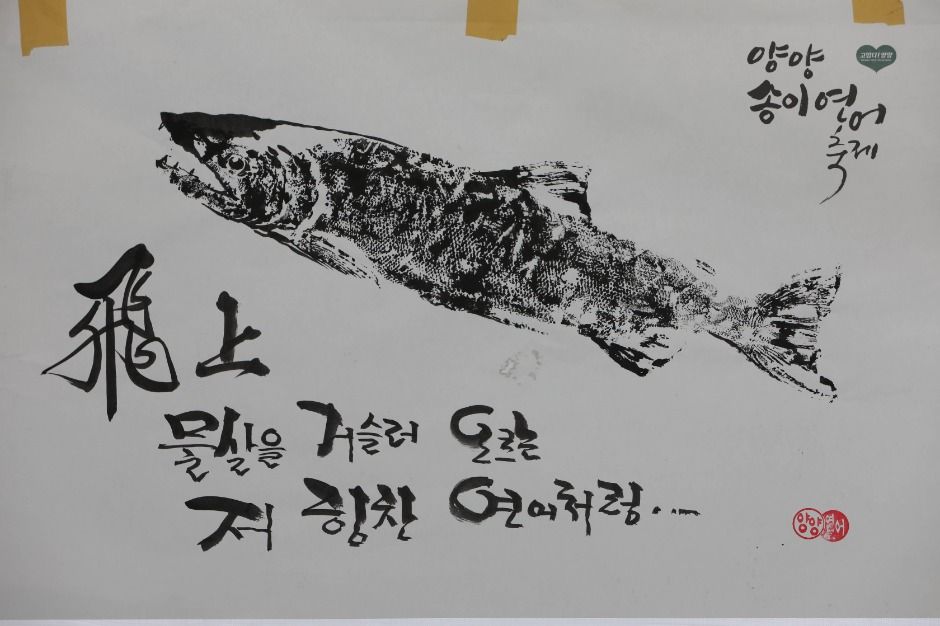 양양
송이연어
축제
고맙다! 양양
飛上
물살을 거슬러 오르는
저 힘찬 연어처럼...
양양연어